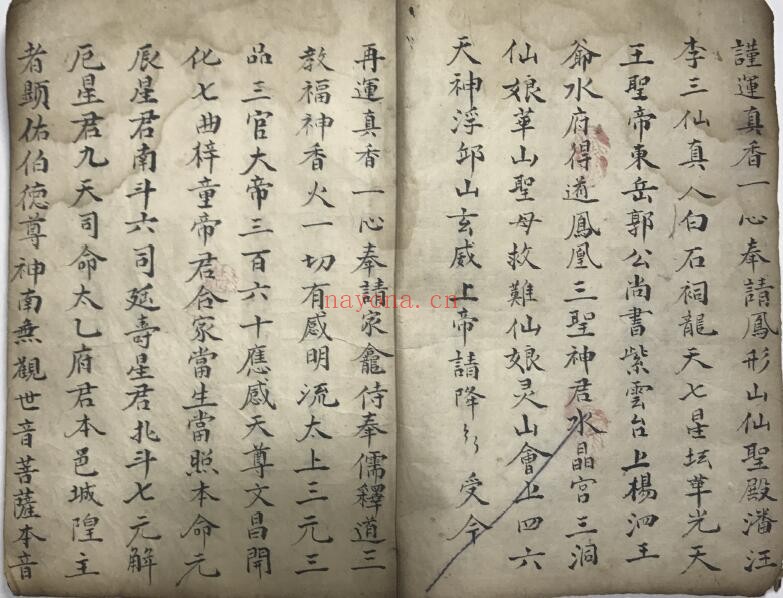 謹運真香一心奉請鳳形山仙聖殿潘汪
李三仙真人白石祠龍天七星坛華光天
王聖帝東岳郭公尚書紫雲台上楊泗王
爺水府得道鳳凰三聖神君水晶宮三洞
仙娘華山聖母救難仙娘灵山會上四六
天神浮邱山玄威上帝請降〻受今
再運真香一心奉請家龕侍奉儒釋道三
教福神香火一切有感明流太上三元三
品三官大帝三百六十應感天尊文昌開
化七曲梓童帝君合家當生當照本命元
辰星君南斗六司延壽星君北斗七元解
厄星君九天司命太乙府君本邑城隍主
者顯佑伯德尊神南無觀世音菩薩本音
nayona.cn